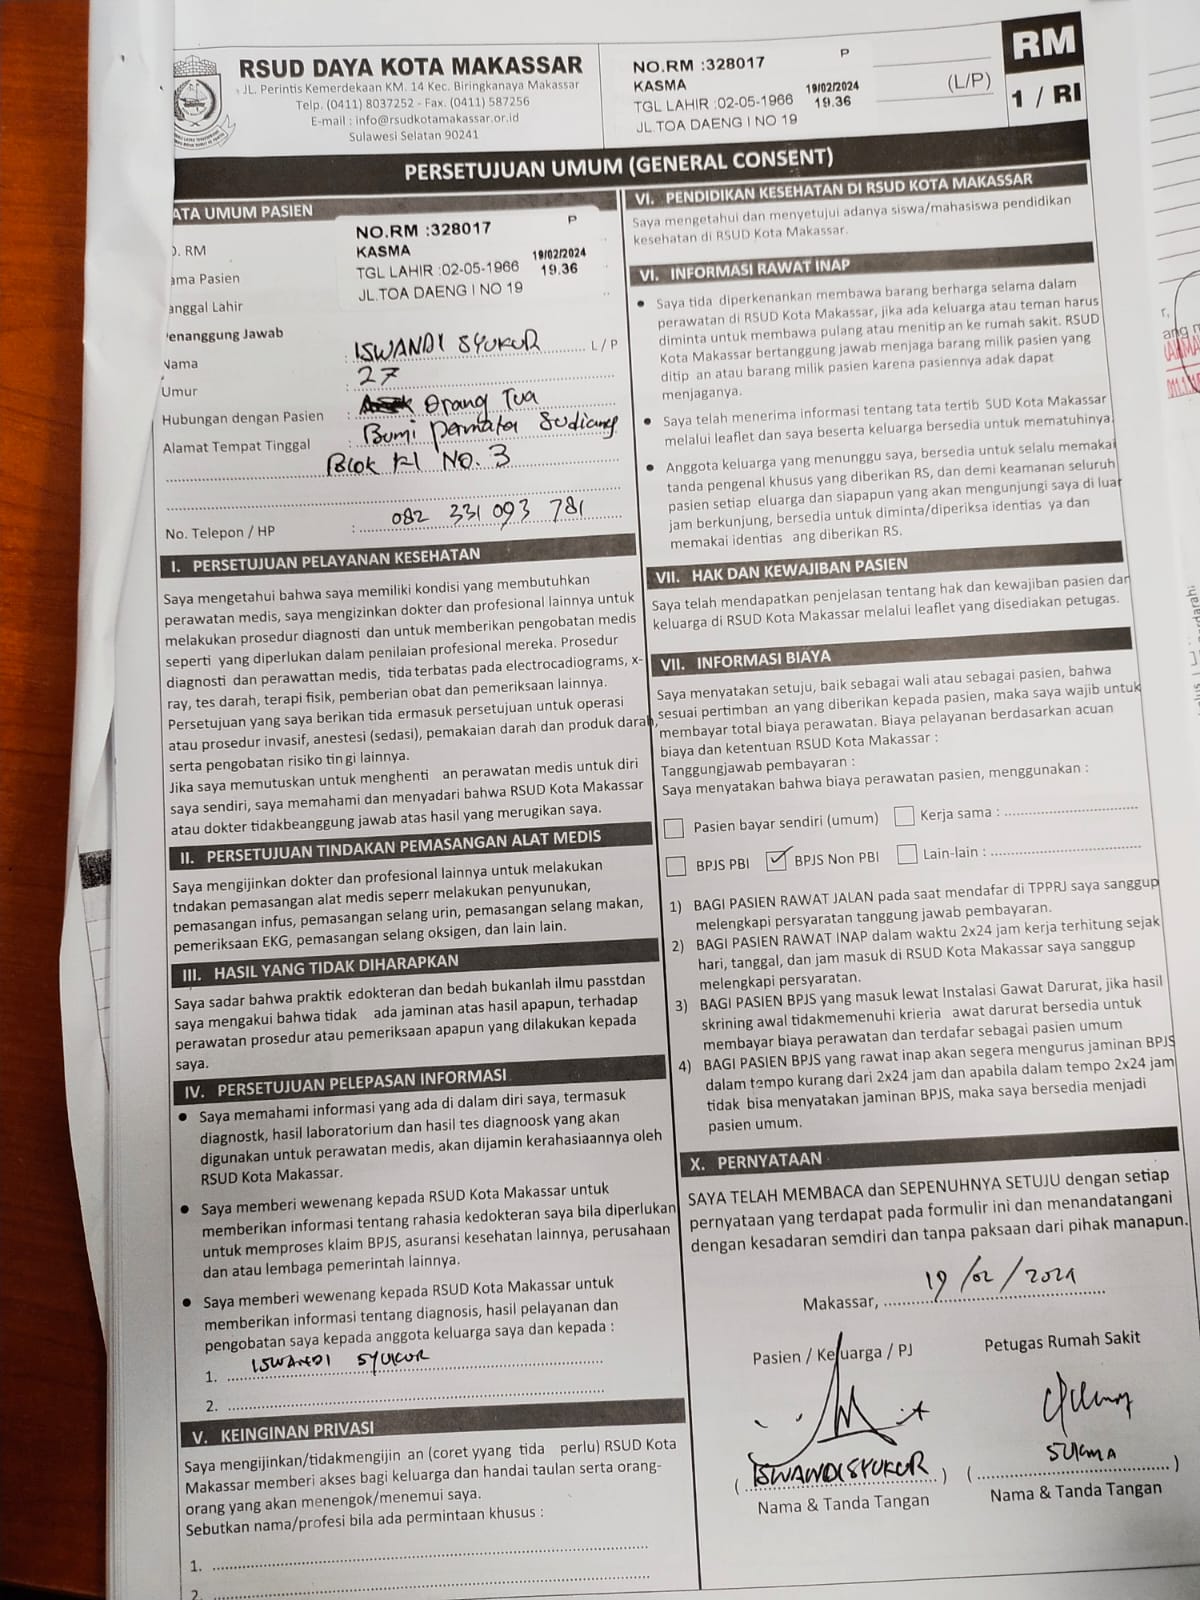 RSUD DAYA KOTA MAKASSAR
JL. Perintis Kemerdekaan KM. 14 Kec. Biringkanaya Makassar
Telp. (0411) 8037252 - Fax. (0411) 587256
E-mail : info@rsudkotamakassar.or.id
Sulawesi Selatan 90241
NO.RM :328017 P
KASMA 19/02/2024
TGL LAHIR :02-05-1966 19.36
JL.TOA DAENG I NO 19
(L/P)
RM
1 / RI
PERSETUJUAN UMUM (GENERAL CONSENT)
ATA UMUM PASIEN
O. RM
ama Pasien
anggal Lahir
NO.RM :328017 P
KASMA 19/02/2024
TGL LAHIR :02-05-1966 19.36
JL.TOA DAENG I NO 19
Penanggung Jawab
Nama : ISWANDI SYUKUR L / P
Umur : 27
Hubungan dengan Pasien : Orang Tua
Alamat Tempat Tinggal : Bumi Permata Sudiang
Blok NO. 3
No. Telepon / HP : 082 331 093 781
I. PERSETUJUAN PELAYANAN KESEHATAN
Saya mengetahui bahwa saya memiliki kondisi yang membutuhkan
perawatan medis, saya mengizinkan dokter dan profesional lainnya untuk
melakukan prosedur diagnosti dan untuk memberikan pengobatan medis
seperti yang diperlukan dalam penilaian profesional mereka. Prosedur
diagnosti dan perawattan medis, tida terbatas pada electrocadiograms, x-
ray, tes darah, terapi fisik, pemberian obat dan pemeriksaan lainnya.
Persetujuan yang saya berikan tida ermasuk persetujuan untuk operasi
atau prosedur invasif, anestesi (sedasi), pemakaian darah dan produk darah,
serta pengobatan risiko tin gi lainnya.
Jika saya memutuskan untuk menghenti an perawatan medis untuk diri
saya sendiri, saya memahami dan menyadari bahwa RSUD Kota Makassar
atau dokter tidakbeanggung jawab atas hasil yang merugikan saya.
II. PERSETUJUAN TINDAKAN PEMASANGAN ALAT MEDIS
Saya mengijinkan dokter dan profesional lainnya untuk melakukan
tndakan pemasangan alat medis seperr melakukan penyunukan,
pemasangan infus, pemasangan selang urin, pemasangan selang makan,
pemeriksaan EKG, pemasangan selang oksigen, dan lain lain.
III. HASIL YANG TIDAK DIHARAPKAN
Saya sadar bahwa praktik edokteran dan bedah bukanlah ilmu passtdan
saya mengakui bahwa tidak ada jaminan atas hasil apapun, terhadap
perawatan prosedur atau pemeriksaan apapun yang dilakukan kepada
saya.
IV. PERSETUJUAN PELEPASAN INFORMASI
• Saya memahami informasi yang ada di dalam diri saya, termasuk
diagnostk, hasil laboratorium dan hasil tes diagnoosk yang akan
digunakan untuk perawatan medis, akan dijamin kerahasiaannya oleh
RSUD Kota Makassar.
• Saya memberi wewenang kepada RSUD Kota Makassar untuk
memberikan informasi tentang rahasia kedokteran saya bila diperlukan
untuk memproses klaim BPJS, asuransi kesehatan lainnya, perusahaan
dan atau lembaga pemerintah lainnya.
• Saya memberi wewenang kepada RSUD Kota Makassar untuk
memberikan informasi tentang diagnosis, hasil pelayanan dan
pengobatan saya kepada anggota keluarga saya dan kepada :
1. ISWANDI SYUKUR
2.
V. KEINGINAN PRIVASI
Saya mengijinkan/tidakmengijin an (coret yyang tida perlu) RSUD Kota
Makassar memberi akses bagi keluarga dan handai taulan serta orang-
orang yang akan menengok/menemui saya.
Sebutkan nama/profesi bila ada permintaan khusus :
1.
2.
VI. PENDIDIKAN KESEHATAN DI RSUD KOTA MAKASSAR
Saya mengetahui dan menyetujui adanya siswa/mahasiswa pendidikan
kesehatan di RSUD Kota Makassar.
VI. INFORMASI RAWAT INAP
• Saya tida diperkenankan membawa barang berharga selama dalam
perawatan di RSUD Kota Makassar, jika ada keluarga atau teman harus
diminta untuk membawa pulang atau menitip an ke rumah sakit. RSUD
Kota Makassar bertanggung jawab menjaga barang milik pasien yang
ditip an atau barang milik pasien karena pasiennya adak dapat
menjaganya.
• Saya telah menerima informasi tentang tata tertib SUD Kota Makassar
melalui leaflet dan saya beserta keluarga bersedia untuk mematuhinya.
• Anggota keluarga yang menunggu saya, bersedia untuk selalu memakai
tanda pengenal khusus yang diberikan RS, dan demi keamanan seluruh
pasien setiap eluarga dan siapapun yang akan mengunjungi saya di luar
jam berkunjung, bersedia untuk diminta/diperiksa identias ya dan
memakai identias ang diberikan RS.
VII. HAK DAN KEWAJIBAN PASIEN
Saya telah mendapatkan penjelasan tentang hak dan kewajiban pasien dan
keluarga di RSUD Kota Makassar melalui leaflet yang disediakan petugas.
VII. INFORMASI BIAYA
Saya menyatakan setuju, baik sebagai wali atau sebagai pasien, bahwa
sesuai pertimban an yang diberikan kepada pasien, maka saya wajib untuk
membayar total biaya perawatan. Biaya pelayanan berdasarkan acuan
biaya dan ketentuan RSUD Kota Makassar :
Tanggungjawab pembayaran :
Saya menyatakan bahwa biaya perawatan pasien, menggunakan :
Pasien bayar sendiri (umum) Kerja sama :
BPJS PBI ✓ BPJS Non PBI Lain-lain :
1) BAGI PASIEN RAWAT JALAN pada saat mendafar di TPPRJ saya sanggup
melengkapi persyaratan tanggung jawab pembayaran.
2) BAGI PASIEN RAWAT INAP dalam waktu 2x24 jam kerja terhitung sejak
hari, tanggal, dan jam masuk di RSUD Kota Makassar saya sanggup
melengkapi persyaratan.
3) BAGI PASIEN BPJS yang masuk lewat Instalasi Gawat Darurat, jika hasil
skrining awal tidakmemenuhi krieria awat darurat bersedia untuk
membayar biaya perawatan dan terdafar sebagai pasien umum
4) BAGI PASIEN BPJS yang rawat inap akan segera mengurus jaminan BPJS
dalam tempo kurang dari 2x24 jam dan apabila dalam tempo 2x24 jam
tidak bisa menyatakan jaminan BPJS, maka saya bersedia menjadi
pasien umum.
X. PERNYATAAN
SAYA TELAH MEMBACA dan SEPENUHNYA SETUJU dengan setiap
pernyataan yang terdapat pada formulir ini dan menandatangani
dengan kesadaran semdiri dan tanpa paksaan dari pihak manapun.
Makassar, 19/02/2024
Pasien / Keluarga / PJ Petugas Rumah Sakit
( ISWANDI SYUKUR ) ( SUKMA )
Nama & Tanda Tangan Nama & Tanda Tangan